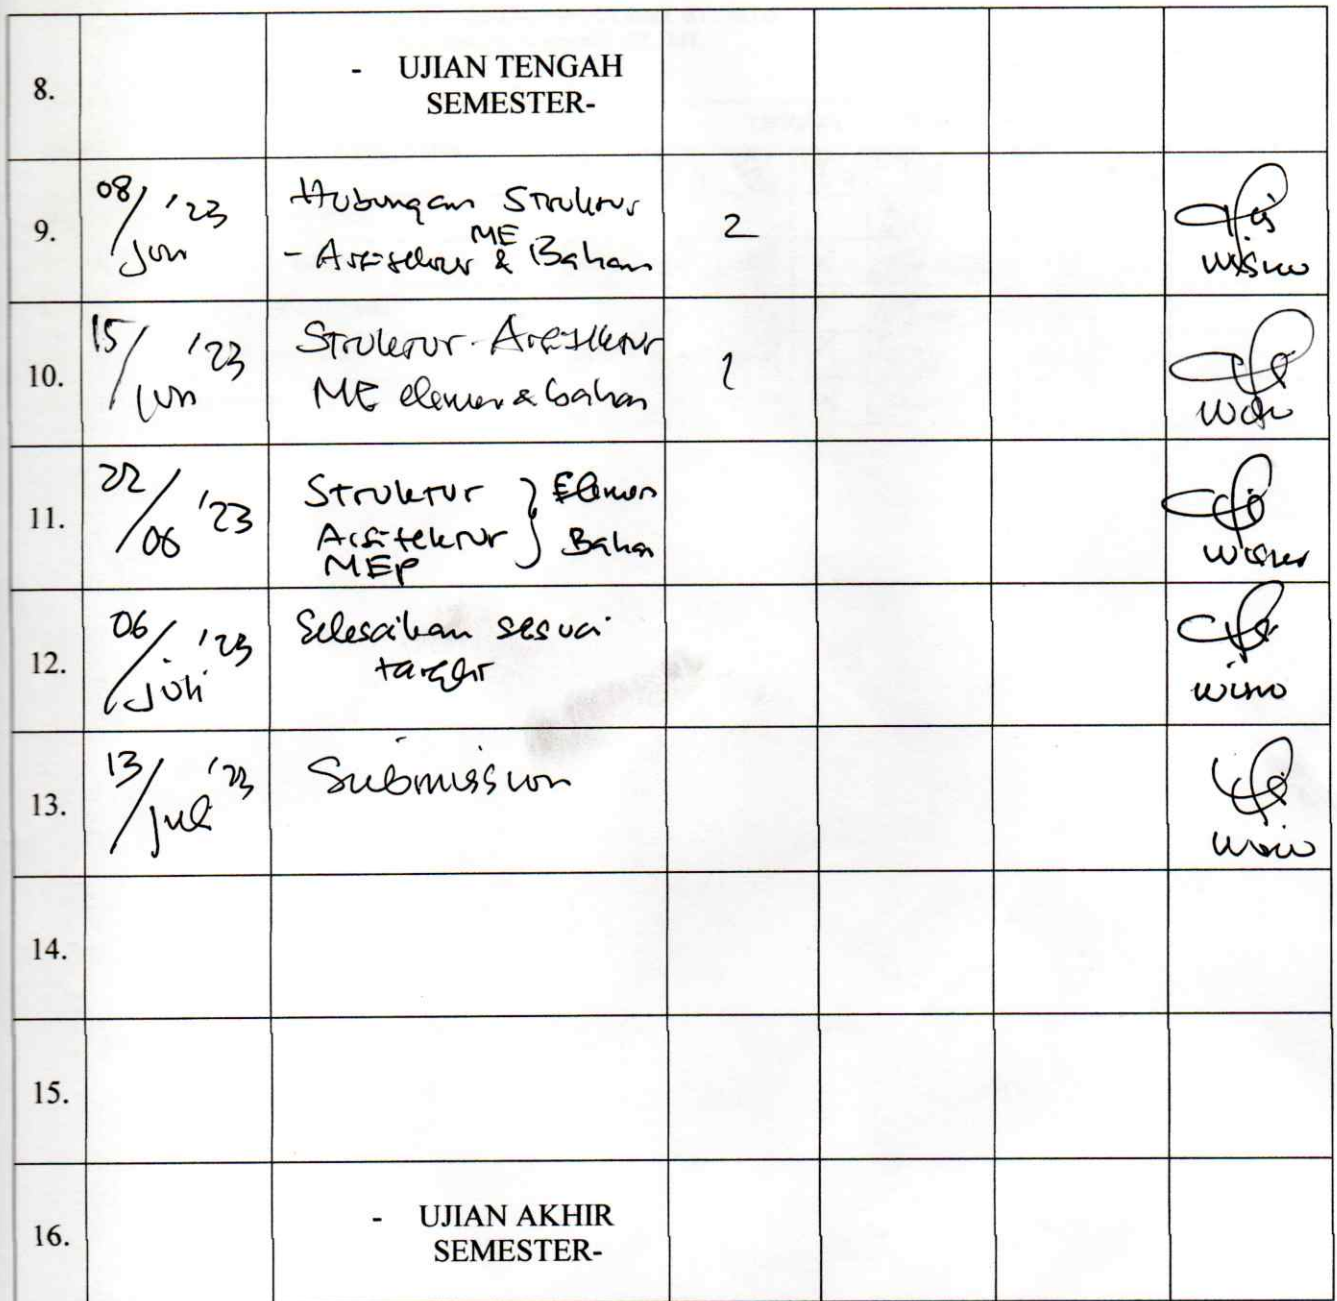 8.
- UJIAN TENGAH
SEMESTER-
9.
08/Jun '23
Hubungan Struktur
ME
- Arsitektur & Bahan
2
10.
15/Jun '23
Struktur - Arsitektur
ME elemen & bahan
11.
22/06 '23
Struktur } Elemen
Arsitektur } Bahan
MEP
12.
06/Juli '23
Selesaikan sesuai
target
13.
13/Jul '23
Submission
14.
15.
16.
- UJIAN AKHIR
SEMESTER-